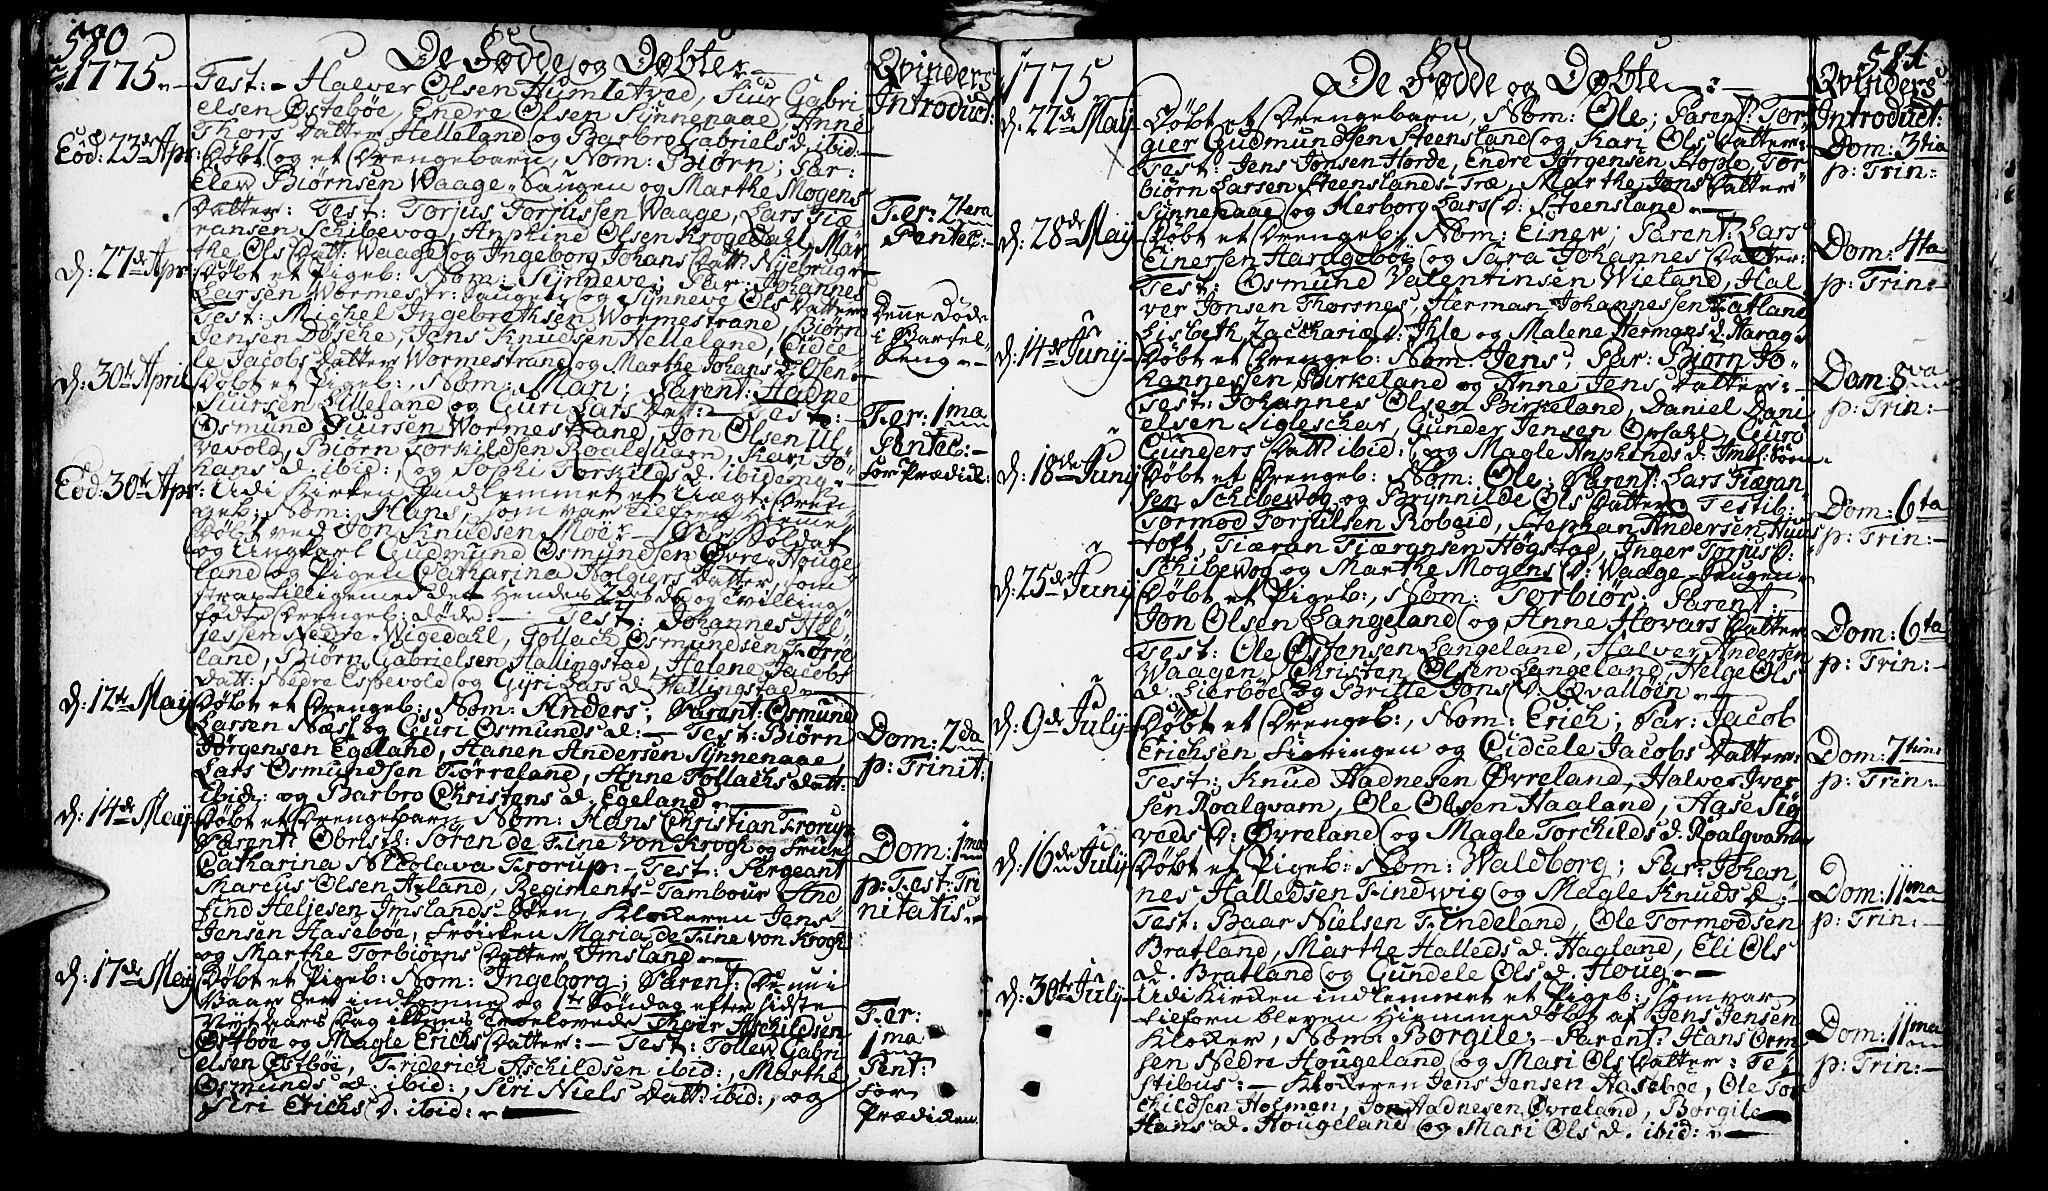 580
1775.
De Fødde og Døbte
Qvinders
Introduct:
Test: Halver Olsen Humletved, Siur Gabri
elsen Østebøe, Endre Olsen Synnenaae, Anne
Thors Datter Helleland og Barbro Gabriels d. ibid:
Eod: 23de Apr:
Døbt og et Drengebarn, Nom: Biørn; Par:
Elew Biørnsen Waage-Haugen og Marthe Mogens
Datter: Test: Torjus Torjussen Waage, Lars Tiæ
ransen Schibevog, Anphind Olsen Krogedahl, Mar
the Ols Datt: Waage og Ingeborg Johans Datt:
Fer: 2tera
Pentec:
d: 27de Apr
Døbt et Pigeb: Nom: Synneve; Par: Johannes
Larsen Wormestr: Haugen og Synneve Ols Datter
Test: Michel Ingebrethsen Wormestrand, Biørn
Jensen Døsche, Jens Knudsen Helleland, Cidce
le Jacobs Datter Wormestrand og Marthe Johans d. Ølen
Denne døde
i Barsel
Seng
d: 30te April
Døbt et Pigeb:, Nom: Mari; Parent: Hadne
Siursen Lilleland og Guri Lars Dat: Test:
Osmund Siursen Wormestrand, Jon Olsen Ul
vevold, Biørn Torkildsen Roalqvam, Kari Jo
hans d. ibid:, og Sophi Torkilds d. ibidem
Fer: 1ma
Pentec:
for Prædik:
Eod: 30te Apr:
Udi Kirken indlemmet et Uægte Dren
geb: Nom: Hans, som var tilforn Hieme
Døbt ved Jon Knudsen Moe: Par: Soldat
og Ungkarl Gudmund Osmundsen Øvre Houge
land og Pigen Catharina Holgiers Datter, som
strax tilligemed det hendes 2det da og Tvilling
fødte Drengeb: døde: Test: Johannes Hel
jessen Nedre-Wigedahl, Tollach Osmundsen Tørre
land, Biørn Gabrielsen Hallingstad, Helene Jacobs
Datt: Nedre Espevold og Gyri Lars d. Hallingstad
d: 12te May
Døbt et Drengeb: Nom: Anders; Parent: Osmund
Larsen Næss og Guri Osmunds d: Test: Biørn
Jørgensen Egeland, Hanen Andersen Synnenaae,
Lars Osmundsen Tørreland, Anne Tollachs datt:
ibid: og Barbro Christens d. Egeland
Dom: 2da
p: Trinit:
d: 14de May
Døbt et Drengebarn Nom: Hans Christian Frorup
Parent: Obristl: Søren de Fine von Krogh og Fruen
Catharina Nicolava Frorup, Test: Sergeant
Marcus Olsen Øland, Regiments-Tambour And
find Heljesen Imslands-Øen, Klokkeren Jens
Jensen Hasebøe, Frøiken Maria de Fine von Krogh
og Marthe Torbiørns Datter Imsland
Dom: 1ma
p: Fest: Tri
nitatis:
d: 17de May
Døbt et Pigeb: Nom: Ingeborg; Parent: De nu i
Vaar her indkomne og 1te Søndag efter sidste
Nyt aars Dag Troelovede Thoer Aschildsen
Østbøe og Magle Erichs Datter: Test: Tollew Gabri
elsen Østbøe, Friderich Aschildsen ibid:, Marthe
Osmunds d. ibid:, Siri Niels Datt: ibid:, og
Siri Erichs d. ibid:
Fer:
1ma
Pent:
for
Prædiken
581
1775
De Fødde og Døbte
Qvinders
Introduct:
d: 22de May
Døbt et Drengebarn, Nom: Ole; Parent: Tor
gier Gudmundsen Steensland og Kari Ols Datter:
Test: Jens Jonsen Horde, Endre Jørgensen Hople, Tor
biørn Larsen Steenslands-Træ, Marthe Jons Datter
Synnenaae og Merborg Lars d: Steensland
Dom: 3tia
p: Trin:
d: 28de May
Døbt et Drengeb:, Nom: Einer; Parent: Lars
Einersen Hardgebøe og Sara Johannes Datter:
Test: Osmund Valentinsen Wieland, Hal
ver Jonsen Thorsnes, Herman Johannessen Fatland
Lisbeth Zachariæ d: Ihle og Malene Hermans d. Aarag
Dom: 4ta
p: Trin:
d: 14de Juny
Døbt et Drengeb: Nom: Jens; Par: Biørn Jo
hannessen Birkeland og Anne Jens Datter:
Test: Johannes Olsen Birkeland, Daniel Dani
elsen Sigleschar, Gunder Jensen Opsahl, Guro
Gunders Datt: ibid: og Magle Anphinds d: Imsl:Øen
Dom: 5va
p: Trin:
d: 18de Juny
Døbt et Drengeb: Nom: Ole; Parent: Lars Tiæran
sen Schibewog og Brynnilde Ols Datter: Testib:
Tormod Torjulsen Robeid, Stephan Andersen Huus
toft, Tiæran Tiæransen Høgstad, Inger Torjus d:
Schibewog og Marthe Mogens d: Waage-Haugen
Dom: 6ta
p: Trin:
d: 25de Juny
Døbt et Pigeb:, Nom: Torbiør: Parent:
Jon Olsen Langeland og Anne Hovars Datter
Test: Ole Østensen Langeland, Halver Andersen
Waagen, Christen Olsen Langeland, Helge Ols
d. Lierbøe og Britte Jons d. Qvalløen
Dom: 6ta
p: Trin:
d: 9de July
Døbt et Drengeb:, Nom: Erich; Par: Jacob
Erichsen Lioringen og Cidcele Jacobs Datter:
Test: Knud Hadnesen Øvreland, Halver Iver
sen Roalqvam, Ole Olsen Haaland, Agse Sig
veds d: Øvreland og Magle Torchilds d. Roalqvam
Dom: 7tima
p: Trin:
d: 16de July
Døbt et Pigeb: Nom: Waldborg; Par: Johan
nes Halledsen Findwig og Magle Knuds d:
Test: Baar Nielsen Findeland, Ole Tormodsen
Bratland, Marthe Halleds d. Haaland, Eli Ols
d. Bratland og Gundele Ols d. Houg
Dom: 11ma
p: Trin:
d: 30te July
Udi Kirken indlemmet et Pigeb: som var
tilforn bleven Hiemmedøbt af Jens Jensen
Klokker, Nom: Borgile; Parent: Hans Orm
sen Nedre Hougeland og Mari Ols Datter: Te
stibus: Klokkeren Jens Jensen Hasebøe, Ole Tor
childsen Holmen, Jon Hadnesen Øvreland, Borgile
Hans d. Hougeland og Mari Ols d. ibid:
Dom: 11ma
p: Trin: